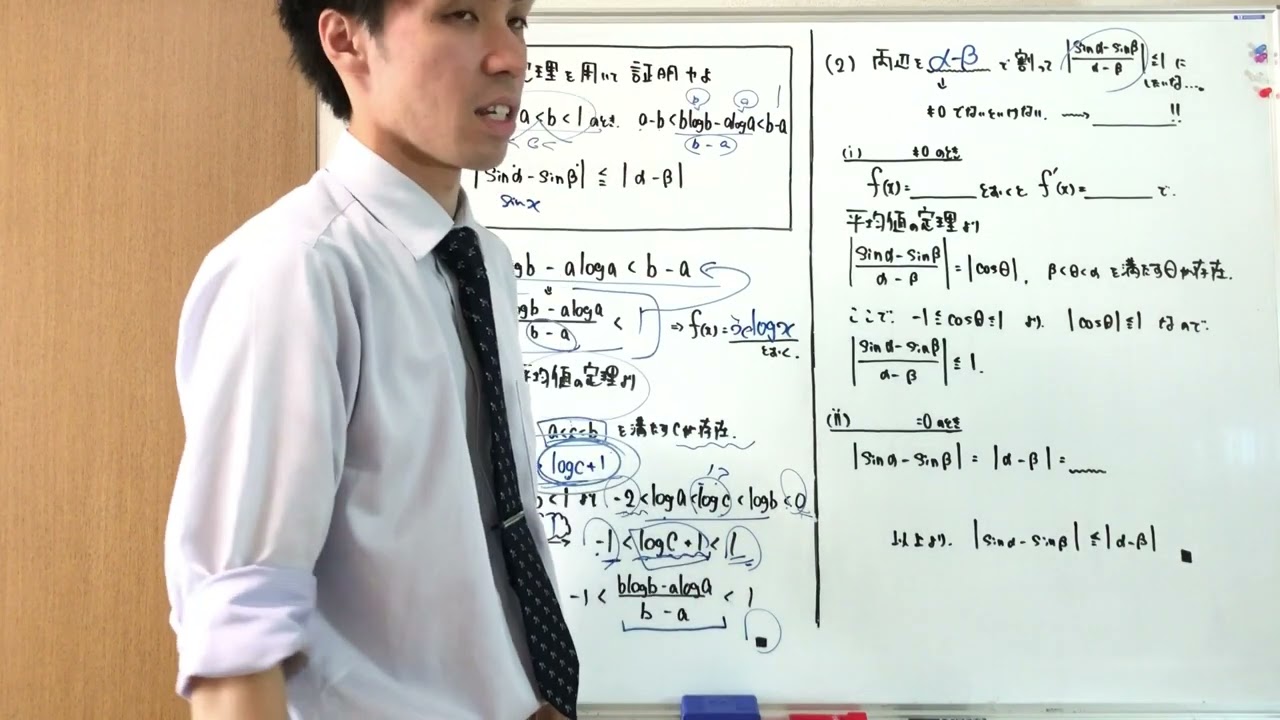 理を用いて証明せよ
a<b<1のとき. a-b<blogb-aloga<b-a
b a 1
c b-a
|sinα-sinβ|≦|α-β|
sinx
gb-aloga<b-a
ogb-aloga/b-a < 1 ⇒ f(x)=xlogx
とおく.
平均値の定理より
a<c<b を満たすcが存在.
logc+1
b<1より -2<loga<logc<logb<0
-1<logc+1<1
-1<blogb-aloga/b-a<1
(2) 両辺をα-βで割って |sinα-sinβ/α-β|≦1に
したいな...
↓
≠0でないといけない. → !!
(i) ≠0のとき
f(x)= とおくと f'(x)= で.
平均値の定理より
|sinα-sinβ/α-β|=|cosθ|, β<θ<αを満たすθが存在.
ここで. -1≦cosθ≦1 より. |cosθ|≦1 なので.
|sinα-sinβ/α-β|≦1.
(ii) =0のとき
|sinα-sinβ|=|α-β|=
以上より. |sinα-sinβ|≦|α-β| ■